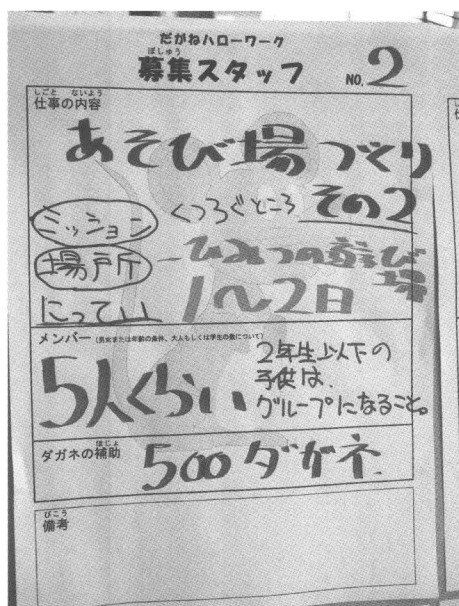 だがねハローワーク
ぼしゅう
募集スタッフ NO.2
しごと ないよう
仕事の内容
あそび場づくり
ミッション くつろぐところ その2
場戸所 ーひみつの遊び場
にって山 1〜2日
メンバー(男女または年齢の条件、大人もしくは学生の数について)
5人くらい
2年生以下の
子供は、
グループになること。
ほじょ
ダガネの補助 500ダガネ
びこう
備考